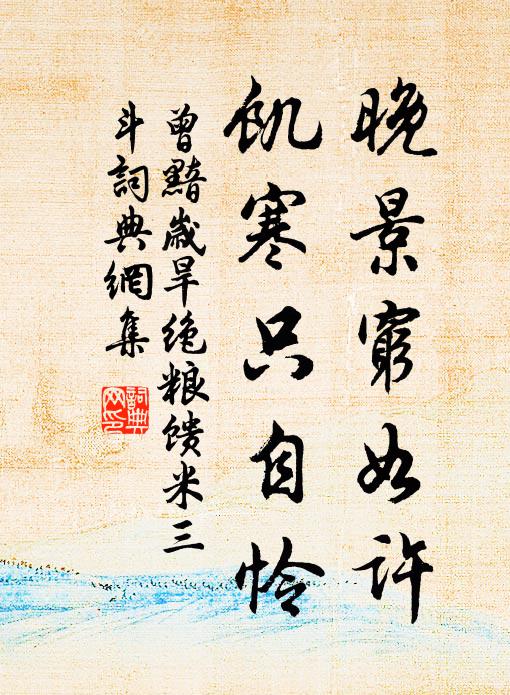 晚景窮如许
飢寒只自怜
曾黯歲旱绝粮馈米三
斗詞典網集
詞典
网印